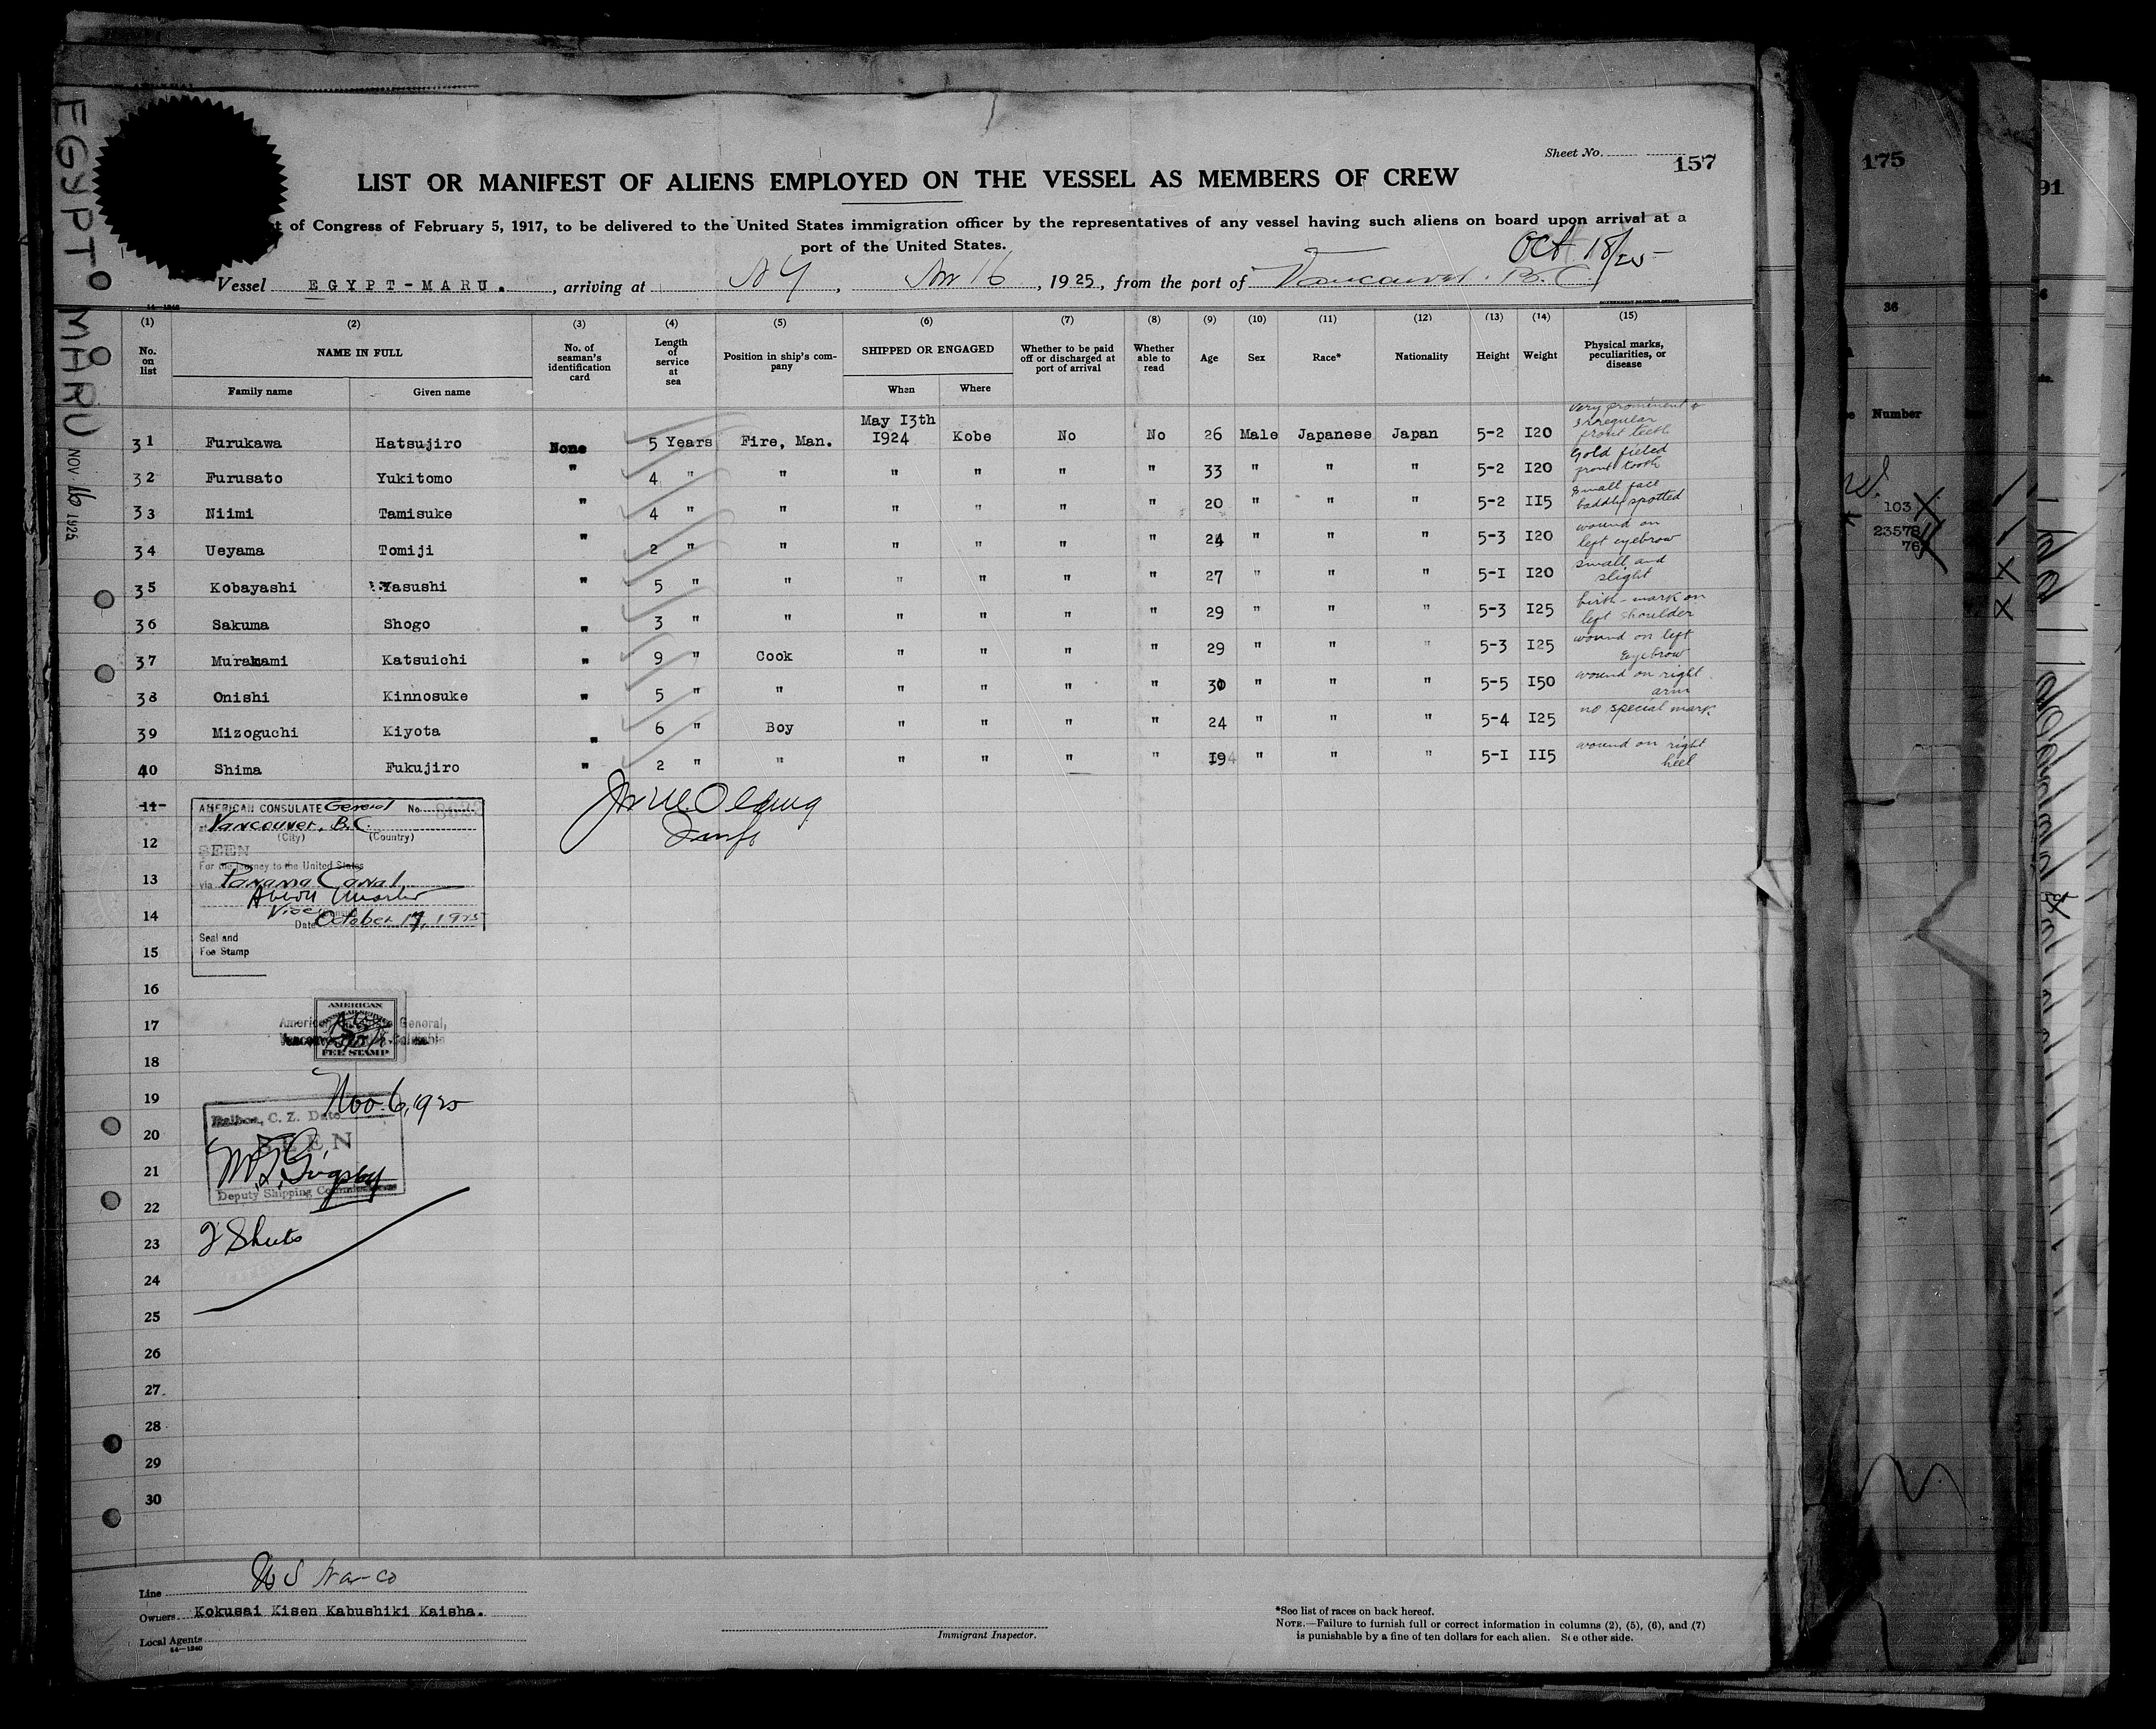 EGYPT MARU NOV 16 1925
Sheet No. 157
LIST OR MANIFEST OF ALIENS EMPLOYED ON THE VESSEL AS MEMBERS OF CREW
of Congress of February 5, 1917, to be delivered to the United States immigration officer by the representatives of any vessel having such aliens on board upon arrival at a
port of the United States.
Oct 18/25
Vessel EGYPT-MARU. , arriving at N Y , Nov 16 , 1925, from the port of Vancouver. B.C.
(1) (2) (3) (4) (5) (6) (7) (8) (9) (10) (11) (12) (13) (14) (15)
No. on list NAME IN FULL Family name Given name No. of seaman's identification card Length of service at sea Position in ship's company SHIPPED OR ENGAGED When Where Whether to be paid off or discharged at port of arrival Whether able to read Age Sex Race* Nationality Height Weight Physical marks, peculiarities, or disease
31 Furukawa Hatsujiro None 5 Years Fire, Man. May 13th 1924 Kobe No No 26 Male Japanese Japan 5-2 120 very prominent & irregular front teeth
32 Furusato Yukitomo " 4 " " " " " " 33 " " " 5-2 120 Gold filled front tooth
33 Niimi Tamisuke " 4 " " " " " " 20 " " " 5-2 115 small face baddly spotted
34 Ueyama Tomiji " 2 " " " " " " 24 " " " 5-3 120 wound on left eyebrow
35 Kobayashi Yasushi " 5 " " " " " " 27 " " " 5-1 120 small and slight
36 Sakuma Shogo " 3 " " " " " " 29 " " " 5-3 125 birth-mark on left shoulder
37 Murakami Katsuichi " 9 " Cook " " " " 29 " " " 5-3 125 wound on left Eyebrow
38 Onishi Kinnosuke " 5 " " " " " " 30 " " " 5-5 150 wound on right arm
39 Mizoguchi Kiyota " 6 " Boy " " " " 24 " " " 5-4 125 no special mark
40 Shima Fukujiro " 2 " " " " " " 19 " " " 5-1 115 wound on right heel
11
12
13
14
15
16
17
18
19
20
21
22
23
24
25
26
27
28
29
30
AMERICAN CONSULATE General No.
at Vancouver, B.C.
(City) (Country)
SEEN
For the journey to the United States
via Panama Canal
Vice
Date October 17, 1925
Seal and
Fee Stamp
AMERICAN
American Consulate General,
Vancouver, British Columbia
FEE STAMP
Nov. 6, 1925
Balboa, C. Z. Date
SEEN
Deputy Shipping Commissioner
Line
Owners Kokusai Kisen Kabushiki Kaisha.
Local Agents
14—1240
Immigrant Inspector.
*See list of races on back hereof.
NOTE.—Failure to furnish full or correct information in columns (2), (5), (6), and (7)
is punishable by a fine of ten dollars for each alien. See other side.
175
36
Number
103
23578
76
91